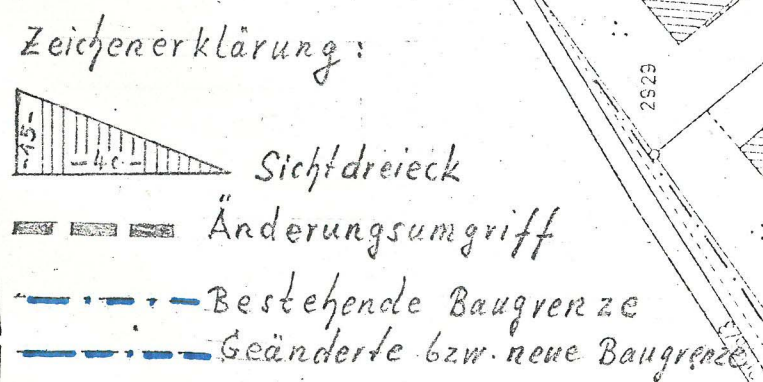 Zeichenerklärung :
2929
-15-
-40-
Sichtdreieck
Änderungsumgriff
Bestehende Baugrenze
Geänderte bzw. neue Baugrenze